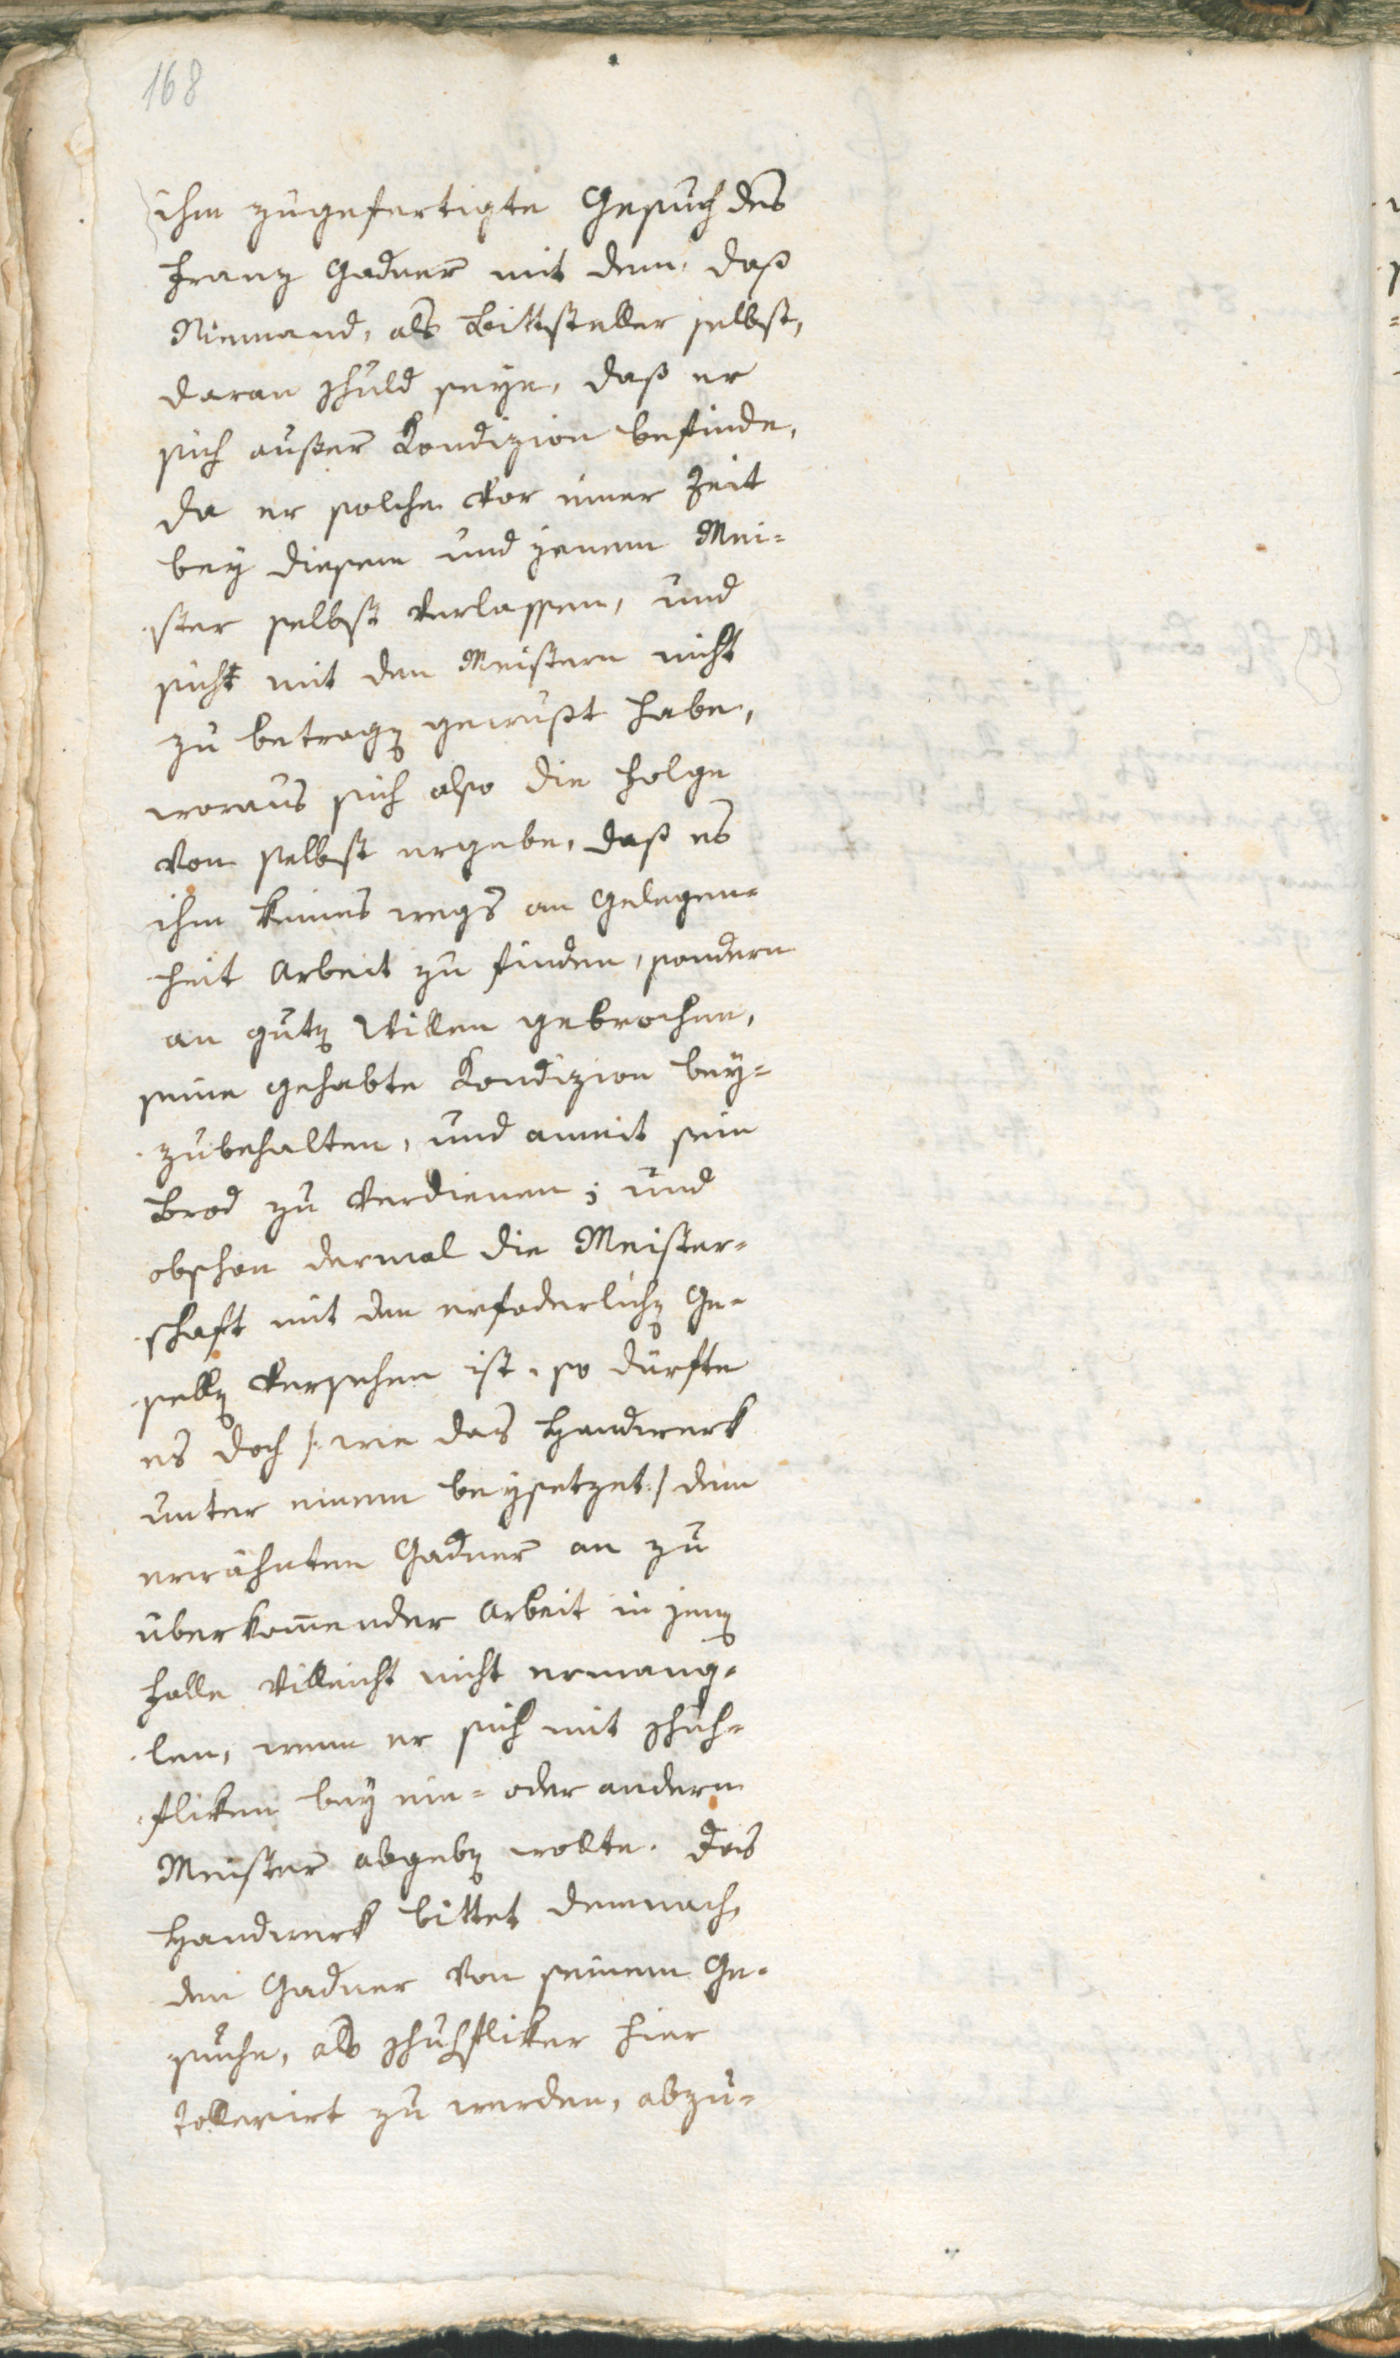 168
ihm zugefertigte Gesuch des
Franz Gadner mit dem, daß
Niemand, als Bittsteller selbst,
daran schuld seye, daß er
sich außer Kondizion befinde,
da er solche vor einer Zeit
bey diesem und jenem Mei=
ster selbst verlassen, und
sicht mit den Meistern nicht
zu betragen gewußt habe,
woraus sich also die Folge
von selbst ergebe, daß es
ihm keines wegs an Gelegen=
heit Arbeit zu finden, sondern
an guten Willen gebrochen,
seine gehabte Kondizion bey=
zubehalten, und anmit sein
Brod zu verdienen; und
obschon dermal die Meister=
schaft mit den erfoderlichen Ge=
sellen versehen ist, so dürfte
es doch /: wie das Handwerk
unter einem beysetzet :/ dem
erwähnten Gadner an zu
überkommender Arbeit in jenen
Falle villeicht nicht ermang=
len, wenn er sich mit Schuh=
fliken bey ein= oder andern
Meister abgeben wollte. Das
Handwerk bittet demnach,
den Gadner von seinem Ge=
suche, als Schuhfliker hier
tollerirt zu werden, abzu=